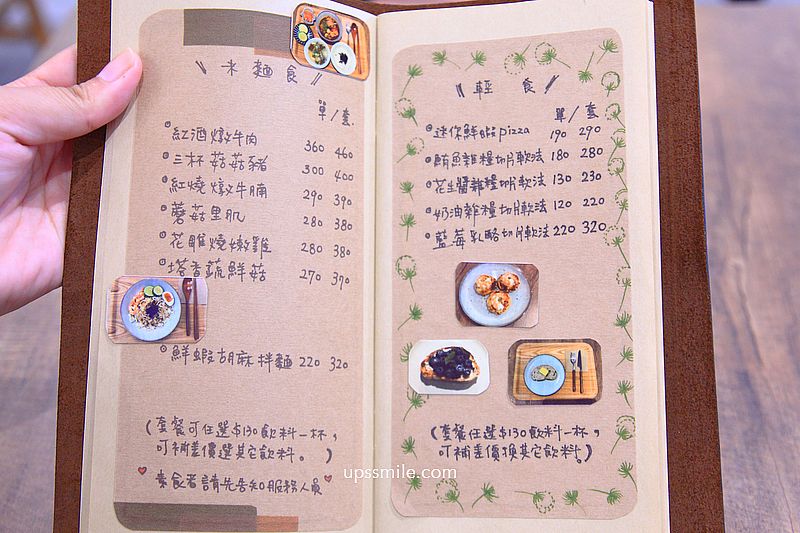 米麵食
單/套
紅酒燉牛肉 360 460
三杯菇菇豬 300 400
紅燒燉牛腩 290 390
蘑菇里肌 280 380
花雕燒嫩雞 280 380
塔香蔬鮮菇 270 370
鮮蝦胡麻拌麵 220 320
(套餐可任選$130飲料一杯,
可補差價選其它飲料。)
素食者請先告知服務人員
輕食
單/套
迷你鮮蝦pizza 190 290
鮪魚雜糧切片軟法 180 280
花生醬雜糧切片軟法 130 230
奶油雜糧切片軟法 120 220
藍莓乳酪切片軟法 220 320
(套餐任選$130飲料一杯,
可補差價換其它飲料。)
upssmile.com